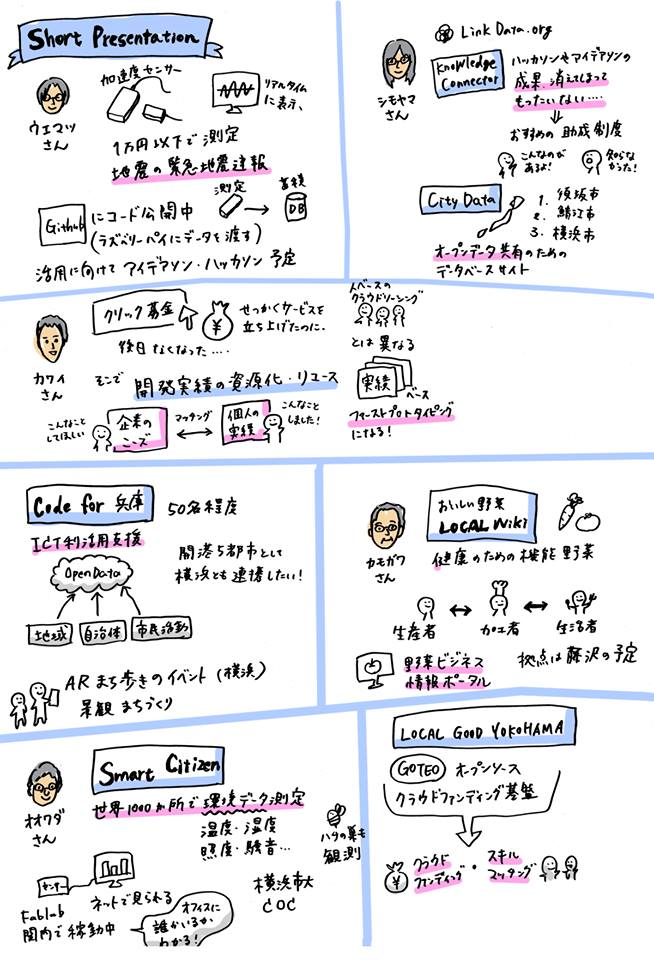 Short Presentation
ウエマツ
さん
加速度センサー
リアルタイム
に表示、
1万円以下で測定
地震の緊急地震速報
Githubにコード公開中
(ラズベリーパイにデータを渡す)
測定
蓄積
DB
活用に向けてアイデアソン・ハッカソン予定
シモヤマ
さん
Link Data.org
Knowledge
Connector
ハッカソンやアイデアソンの
成果、消えてしまって
もったいない....
おすすめの助成制度
こんなのが
あるよ!
知らな
かった!
City Data
1. 須坂市
2. 鯖江市
3. 横浜市
オープンデータ共有のための
データベースサイト
カワイ
さん
クリック募金
¥
せっかくサービスを
立ち上げたのに、
後日なくなった....
そこで 開発実績の資源化・リユース
こんなこと
してほしい
企業の
ニーズ
マッチング
個人の
実績
こんなこと
しました!
人ベースの
クラウドソーシング
とは異なる
実績
ベース
ファーストプロトタイピング
になる!
Code for 兵庫
50名程度
ICT利活用支援
Open Data
地域
自治体
市民活動
開港5都市として
横浜とも連携したい!
ARまち歩きのイベント(横浜)
景観まちづくり
カモガワ
さん
おいしい野菜
LOCAL Wiki
健康のための機能野菜
生産者
加工者
生活者
野菜ビジネス
情報ポータル
拠点は藤沢の予定
オオワダ
さん
Smart Citizen
世界1000か所で環境データ測定
温度・湿度
照度・騒音...
ハチの巣も
観測
センサー
ネットで見られる
Fablab
関内で稼動中
オフィスに
誰がいるか
わかる!
横浜市大
COC
LOCAL GOOD YOKOHAMA
GOTEO オープンソース
クラウドファンディング基盤
¥
クラウド
ファンディング
・
スキル
マッチング